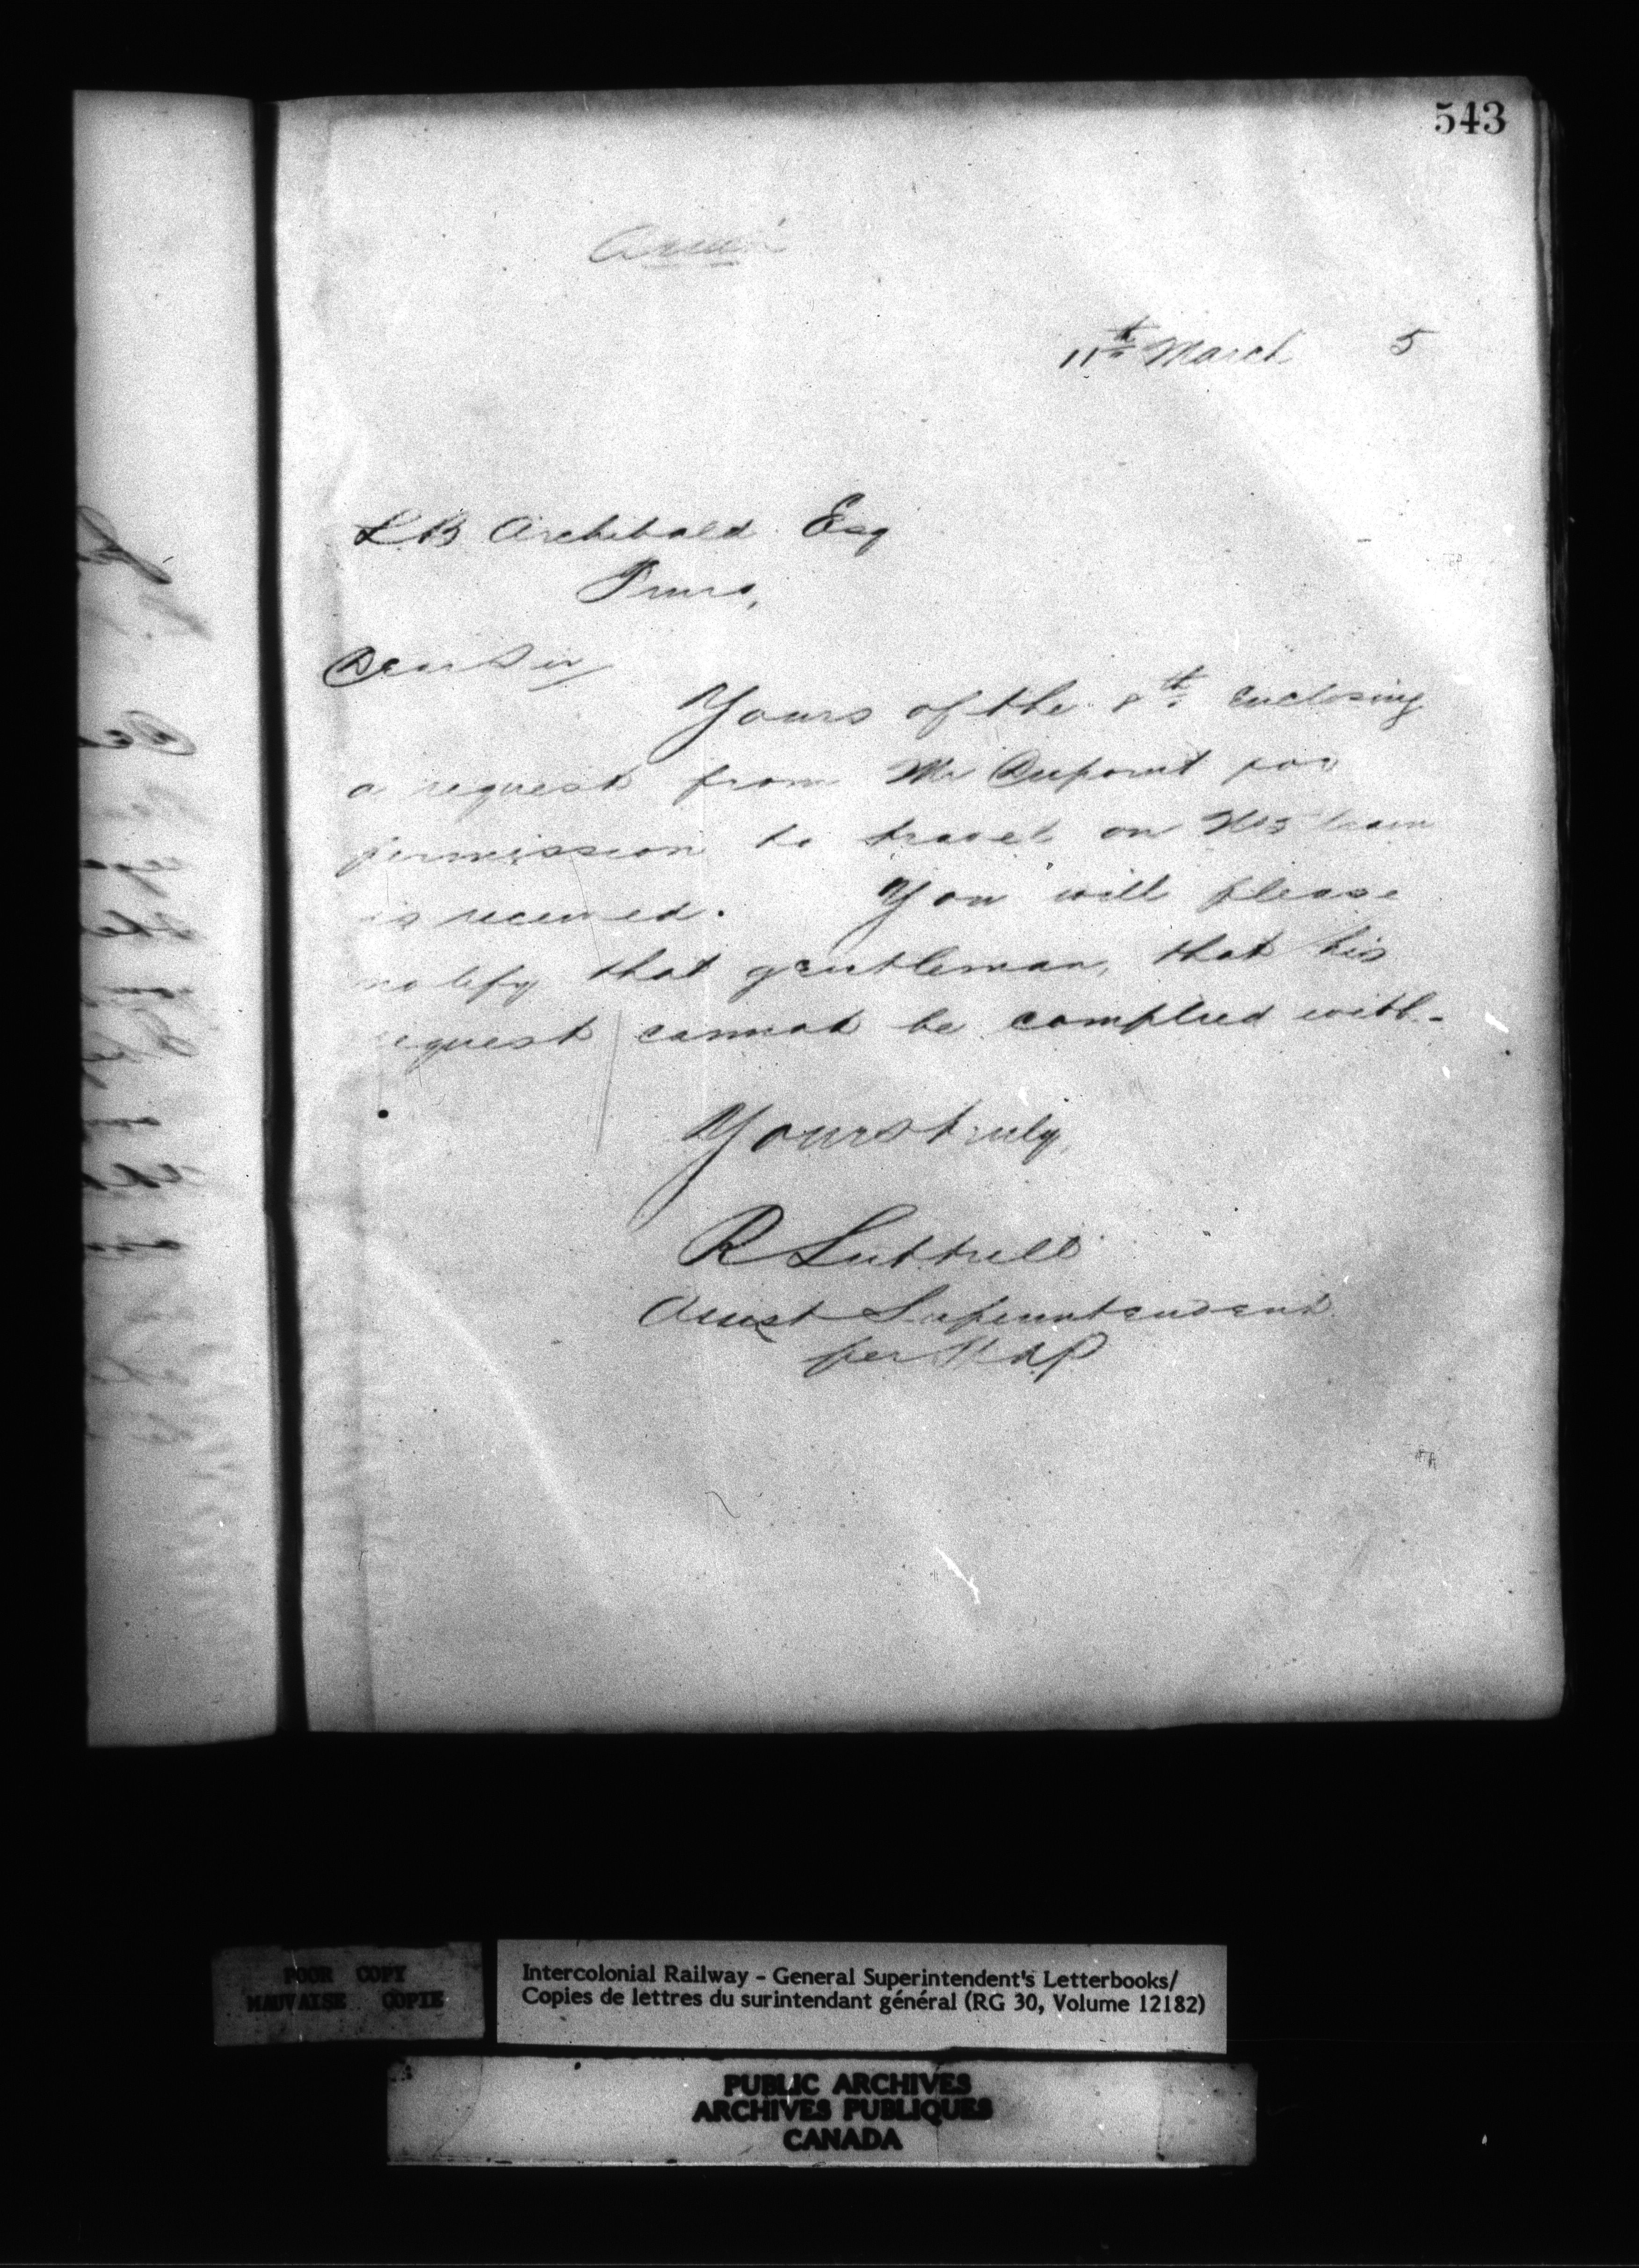 543
11th March 5
L B Archibald Esq
Truro,
Dear Sir
Yours of the 8th enclosing
a request from Mr Dupont for
permission to travel on No 5 train
is received. You will please
notify that gentleman, that his
request cannot be complied with-
Yours truly,
R Luttrell
Assist Superintendent
per
POOR COPY
MAUVAISE COPIE
Intercolonial Railway - General Superintendent's Letterbooks/
Copies de lettres du surintendant général (RG 30, Volume 12182)
PUBLIC ARCHIVES
ARCHIVES PUBLIQUES
CANADA